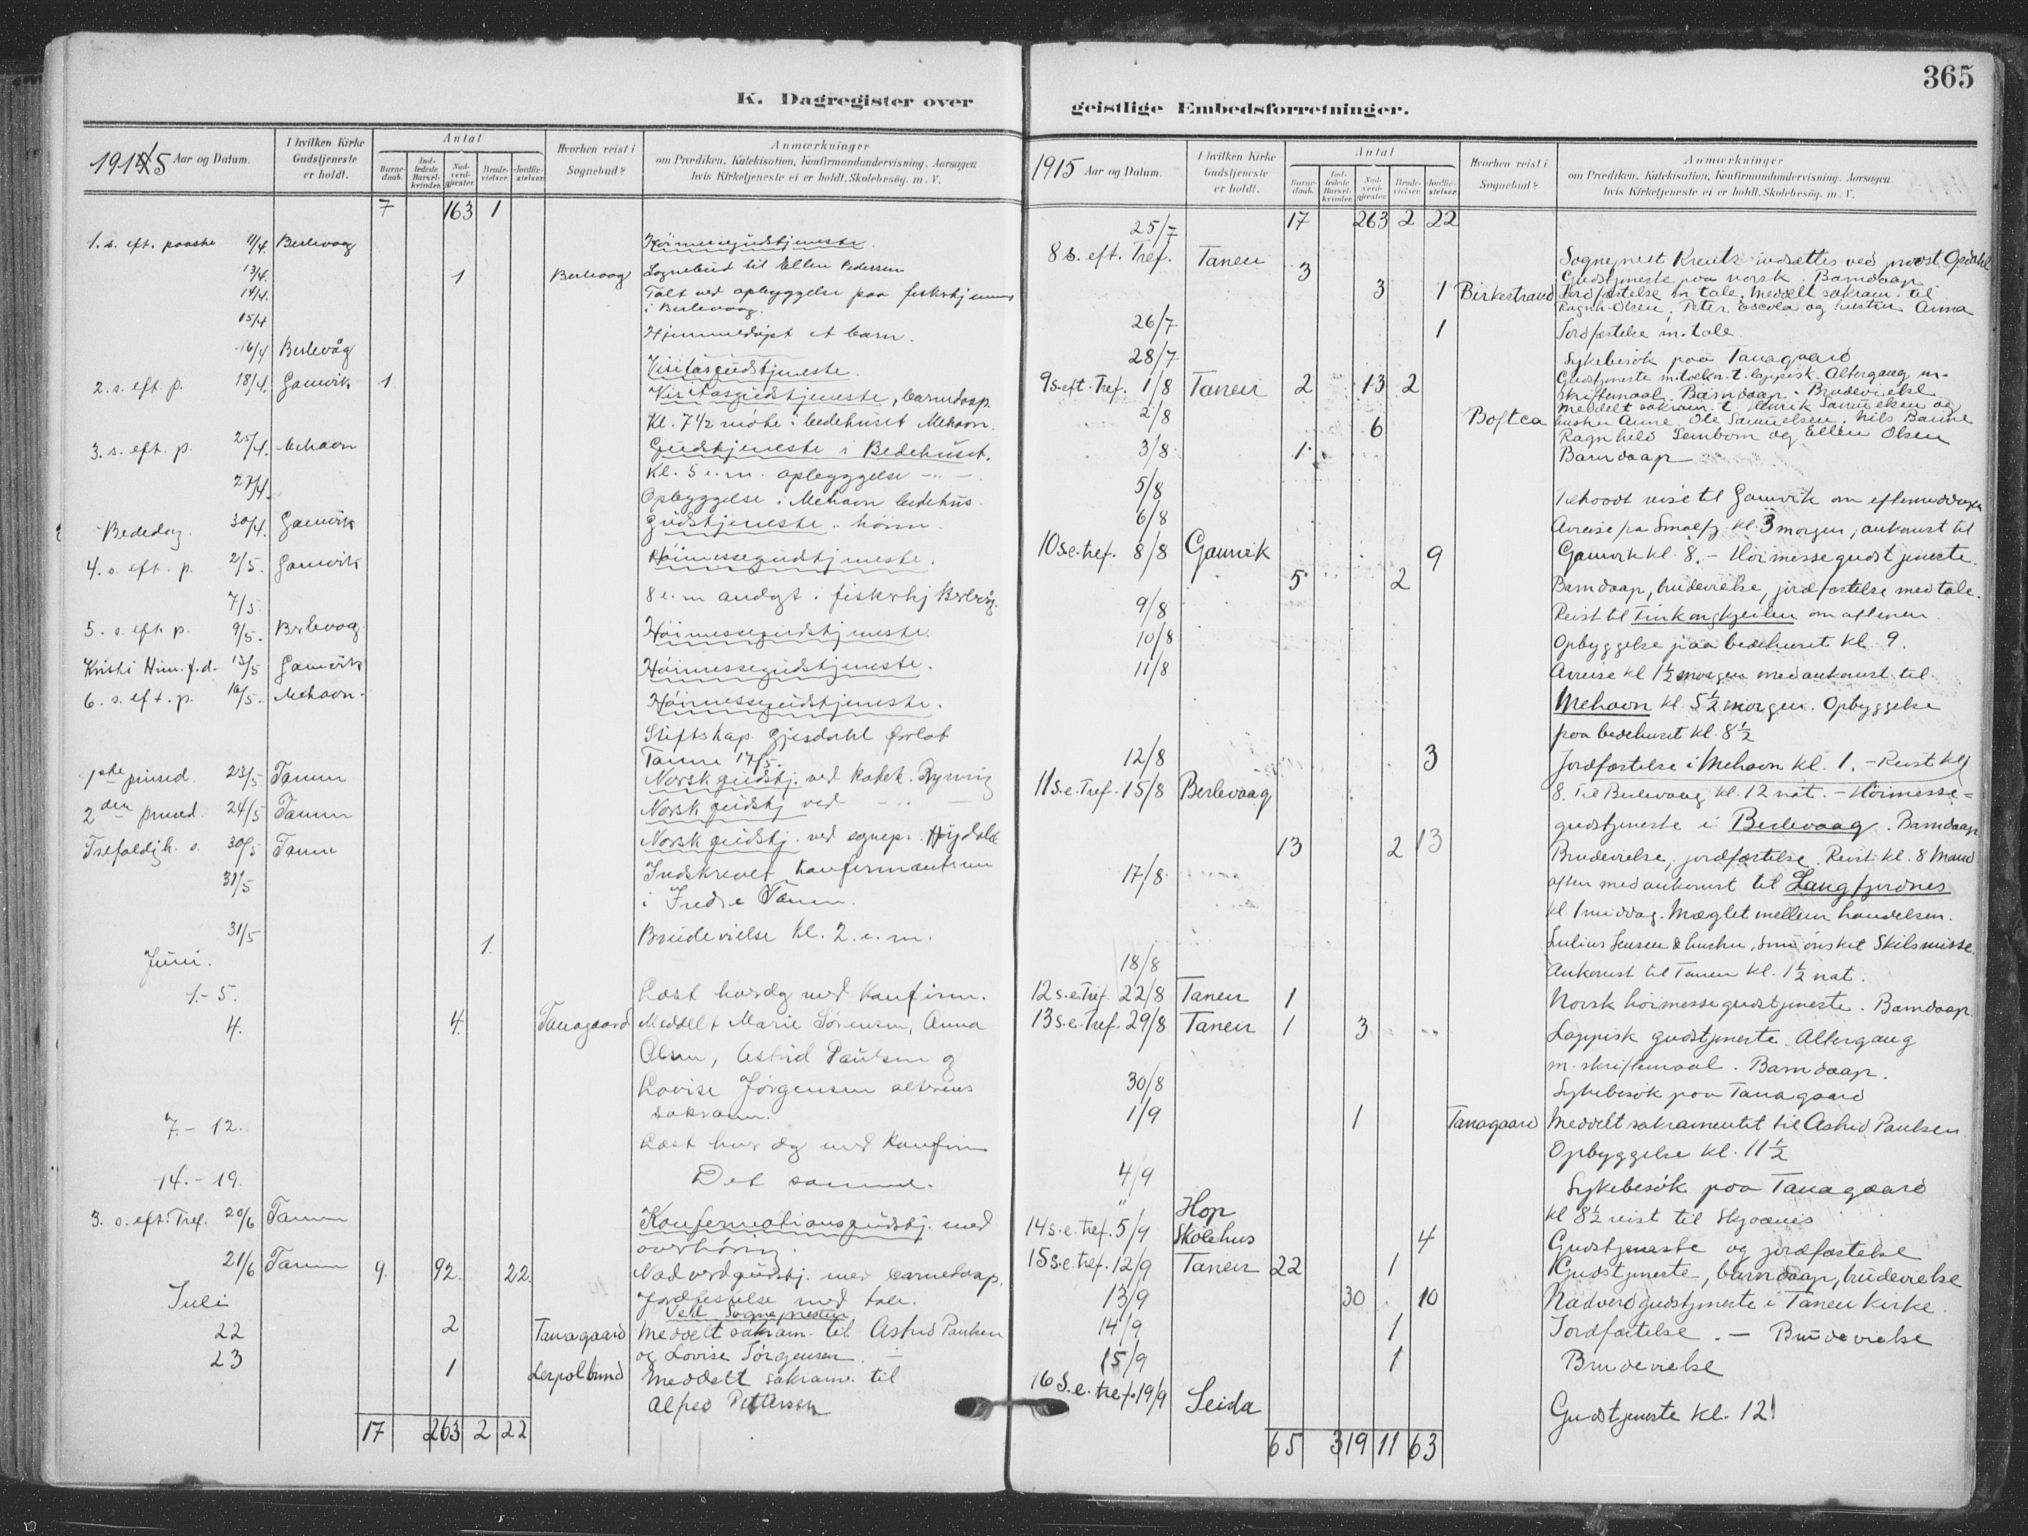 K. Dagregister over
1915 Aar og Datum.
I hvilken Kirke Gudstjeneste er holdt.
Antal
Barnedaab. Indledede Barselkvinder. Nadverdgjester. Brudevielser. Jordfæstelser.
Hvorhen reist i Sognebud?
Anmærkninger
om Prædiken, Katekisation, Konfirmandundervisning, Aarsagen
hvis Kirketjeneste ei er holdt, Skolebesøg, m. V.
7 163 1
1. s. eft. paaske 11/4. Berlevaag Høimessegudstjeneste.
13/4. 1 Berlevaag Sognebud til Ellen Pedersen
14/4. Talt ved opbyggelse paa fiskerhjemmet
i Berlevaag.
15/4 Hjemmedøpt et barn.
16/4 Berlevåg Visitasgudstjeneste.
2. s. eft. p. 18/4. Gamvik 1 Visitasgudstjeneste, barnedaap.
Kl. 7 1/2 møte i bedehuset Mehavn.
3. s. eft. p. 25/4. Mehavn Gudstjeneste i Bedehuset.
Kl. 5 e.m. opbyggelse
27/4. Opbyggelse i Mehavn bedehus.
Bededag. 30/4. Gamvik Gudstjeneste
4. s. eft. p. 2/5. Gamvik Høimessegudstjeneste.
7/5. 8 e.m andagt i fiskerhj Berlevåg.
5. s. eft. p. 9/5. Berlevaag. Høimessegudstjeneste.
Kristi Him. f. d. 13/5 Gamvik Høimessegudstjeneste.
6. s. eft. p. 16/5. Mehavn. Høimessegudstjeneste.
Stiftskap. Gjesdahl forlot
Tanen 17/5.
1ste pinsed. 23/5. Tanen Norsk gudstj. ved Katek.
2den pinsed. 24/5 Tanen Norsk gudstj ved
Trefoldigh. s. 30/5 Tanen Norsk gudstj. ved sognepr. Høydahl
31/5 Indskrevet konfirmanterne
i Tanen.
31/5 1. Brudevielse kl. 2. e. m.
Juni.
1.-5. Læst hverdag med konfirm.
4. 4. Tanagaard Meddelt Marie Sørensen, Anna
Olsen, Astrid Paulsen og
Lovise Jørgensen alterens
sakram.
7.-12. Læst hver dag med konfirm
14.-19. Det samme.
3. s. eft. Tref. 20/6 Tanen Konfirmationsgudstj. med
overhøring.
21/6 Tanen 9. 92. 22. Nadverdgudstj. med barnedaap.
Jordfæstelse med tale.
Juli Ved Sognepresten
22 2 Tanagaard Meddelt sakram. til Astrid Paulsen
og Lovise Jørgensen.
23 1 Leirpolbund Meddelt sakram. til
Alfred Pettersen
17 263 2 22
365
geistlige Embedsforretninger.
1915 Aar og Datum.
I hvilken Kirke Gudstjeneste er holdt.
Antal
Barnedaab. Indledede Barselkvinder. Nadverdgjester. Brudevielser. Jordfæstelser.
Hvorhen reist i Sognebud?
Anmærkninger
om Prædiken, Katekisation, Konfirmandundervisning, Aarsagen
hvis Kirketjeneste ei er holdt, Skolebesøg, m. V.
17 263 2 22
25/7
8 s. eft. Tref. Tanen Sogneprest Kreutz indsættes ved prost Opdahl
3 Gudstjeneste paa norsk. Barndaap
3 1 Birkestrand Jordfæstelse m tale. Meddelt sakram. til
Ragnh. Olsen, Peter Escola og hustru Anna
26/7 1 Jordfæstelse m. tale
28/7 Sykebesök paa Tanagaard
9 s. eft. Tref. 1/8 Tanen 2 13 2 Gudstjeneste m. tolkn. t. lappisk. Altergang m.
skriftemaal. Barndaap. Brudevielse
2/8 6 Boftca meddelt sakram. t. Henrik Samuelsen og
hustru Anne, Ole Samuelsen, Nils Banne
Ragnhild Sembom og Ellen Olsen
3/8 1 Barndaap
5/8 Tilbords reise til Gamvik om eftermiddagen
6/8 Avreise pa Smalfj. kl. 3 morgen, ankomst til
10 s. e. tref. 8/8 Gamvik 9 Gamvik kl 8. – Höimessegudstjeneste.
5 2 Barndaap, brudevielse, jordfæstelse med tale.
9/8 Reist til Finkongkjeilen om aftenen.
10/8 Opbyggelse paa bedehuset kl. 9.
11/8 Avreise kl 1 1/2 morgen med ankomst til
Mehavn kl. 5 1/2 morgen. Opbyggelse
paa bedehuset kl. 8 1/2
12/8 3 Jordfæstelse i Mehavn kl. 1. – Reist kl
11 s. e. Tref. 15/8 Berlevaag 8. til Berlevaag kl. 12 nat. – Höimesse=
gudstjeneste i Berlevaag. Barndaap
13 2 13 Brudevielse, jordfæstelse. Reist kl. 8 Mand
17/8. aften med ankomst til Langfjordnes
kl. 1 middag. Mæglet mellem handelsm.
Julius Jensen & hustru, som önsket Skilsmisse.
18/8 Ankomst til Tanen kl. 1 1/2 nat.
12 s. e. Tref. 22/8 Tanen 1 Norsk höimessegudstjeneste. Barndaap.
13 s. e. Tref. 29/8 Tanen 1 3 Lappisk gudstjeneste. Altergang
m. skriftemaal. Barndaap.
30/8 Sykebesök paa Tanagaard
1/9 1 Tanagaard Meddelt sakramentet til Astrid Paulsen
Opbyggelse kl. 11 1/2
4/9 Sykebesök paa Tanagaard
" Hop kl 8 1/2 reist til Skjaanes
14 s. e. tref. 5/9 Skolehus 4 Gudstjeneste og jordfæstelse
15 s. e. tref. 12/9 Tanen 22 1 Gudstjeneste, barndaap, brudevielse
13/9 30 10 Nadverdgudstjeneste i Tanen kirke.
14/9 1 Jordfæstelse. – Brudevielse
15/9 1 Brudevielse
16 s. e. tref. 19/9 Seida Gudstjeneste kl. 12!
65 319 11 63